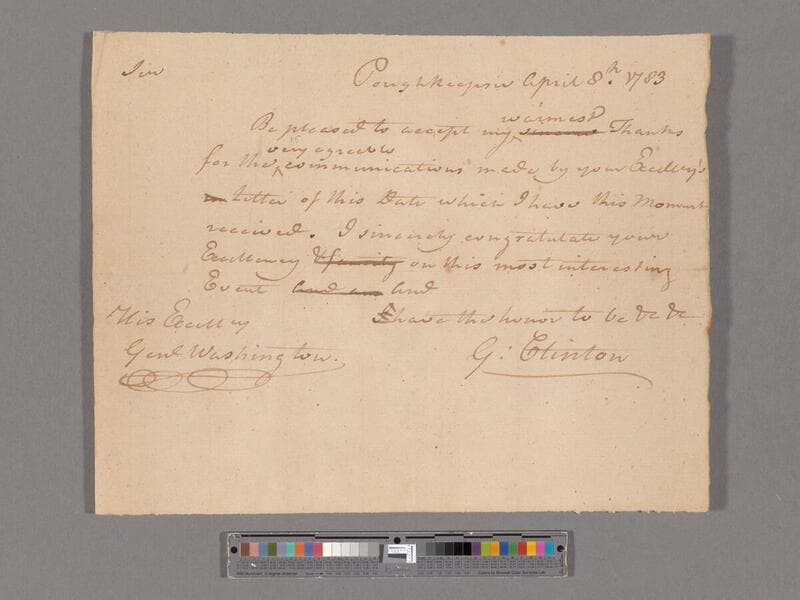 Sir Poughkeepsie April 8th. 1783
warmest
Be pleased to accept my sincere Thanks
very agreeable
for the communications made by your Excellcy's
a Letter of this Date which I have this Moment
received. I sincerely congratulate your
Excellency & family on this most interesting
Event and am and
His Excellcy I have the honor to be &c &c
Genl Washington. G: Clinton